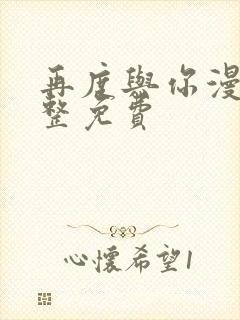 再度與你漫
整免費
心懷希望1